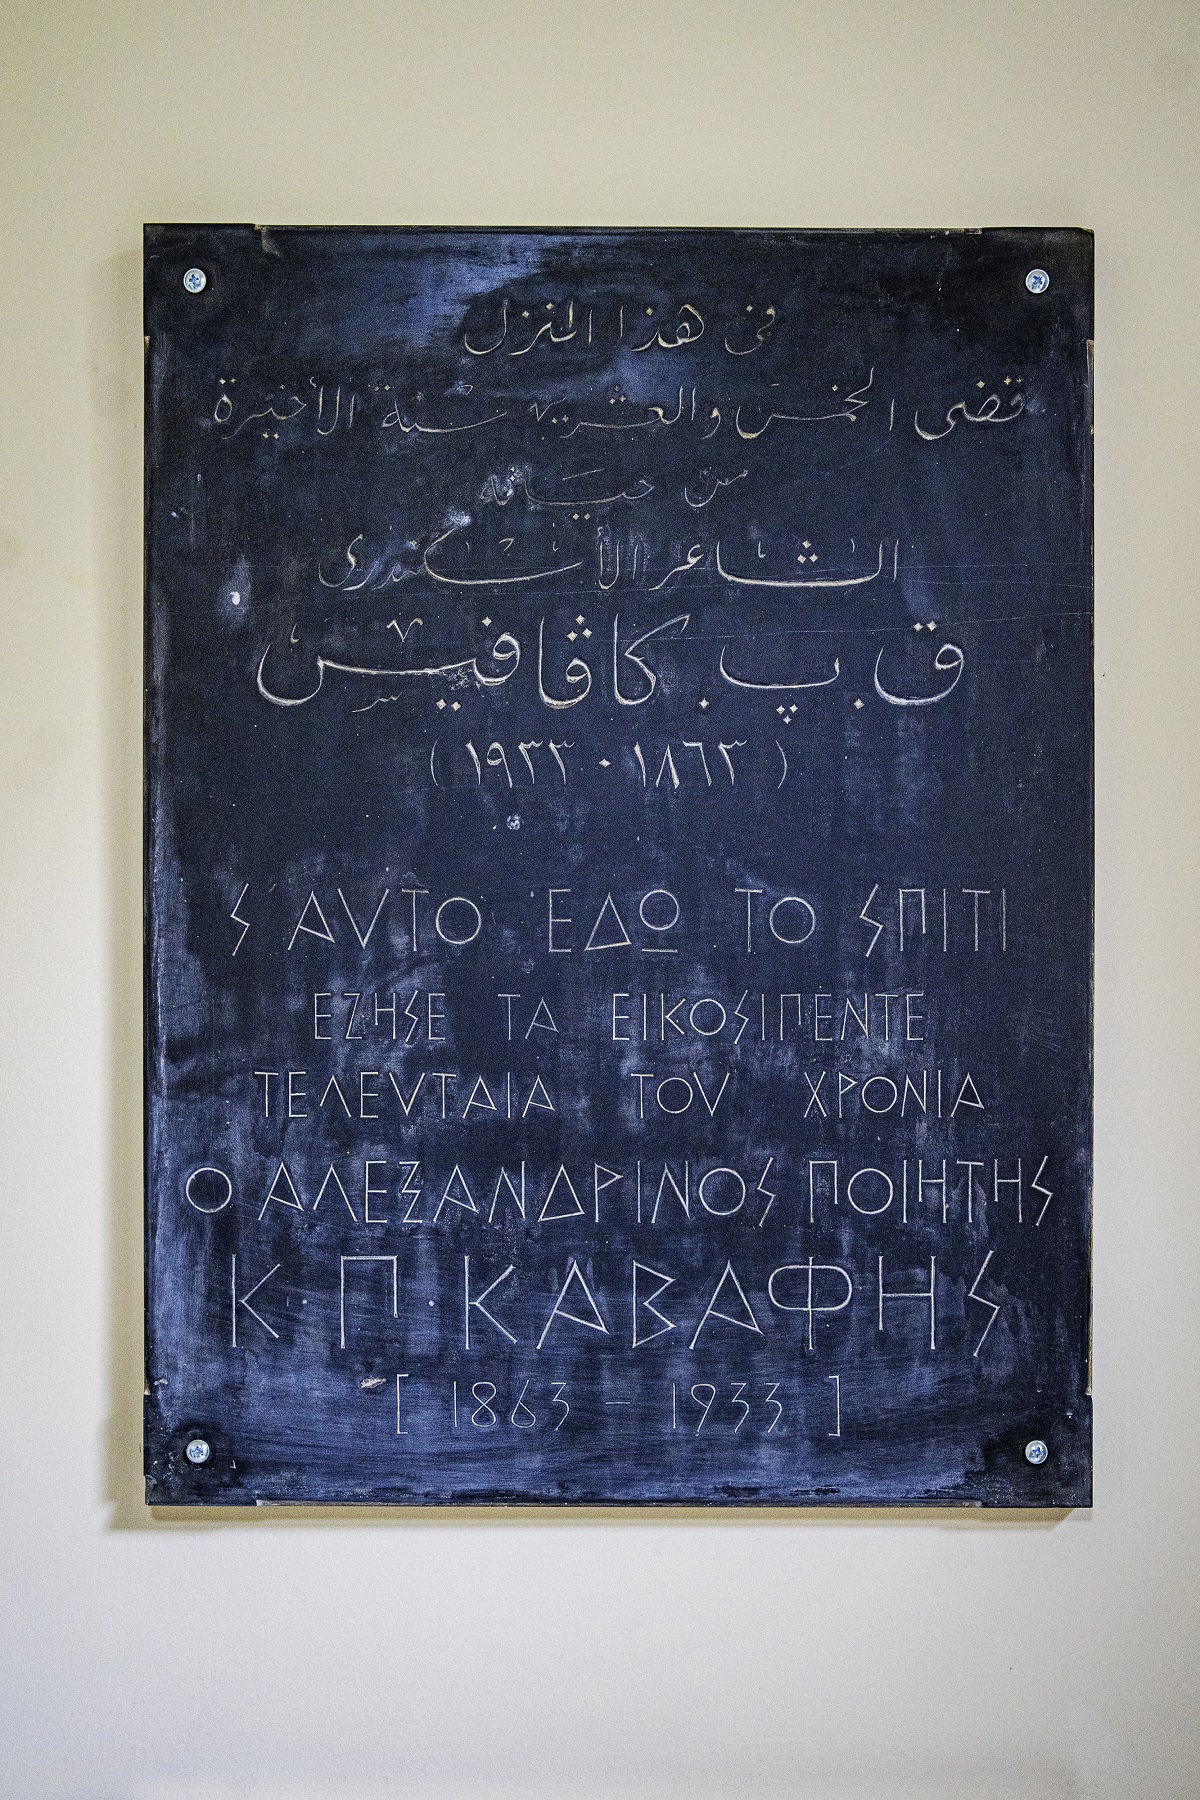 فى هذا المنزل
قضى الخمس والعشرين سنة الأخيرة
من حياته
الشاعر الأسكندرى
ق . پ . كاڤافيس
(١٨٦٣ - ١٩٣٣)
Σ' ΑΥΤΟ ΕΔΩ ΤΟ ΣΠΙΤΙ
ΕΖΗΣΕ ΤΑ ΕΙΚΟΣΙΠΕΝΤΕ
ΤΕΛΕΥΤΑΙΑ ΤΟΥ ΧΡΟΝΙΑ
Ο ΑΛΕΞΑΝΔΡΙΝΟΣ ΠΟΙΗΤΗΣ
Κ·Π·ΚΑΒΑΦΗΣ
[ 1863 – 1933 ]